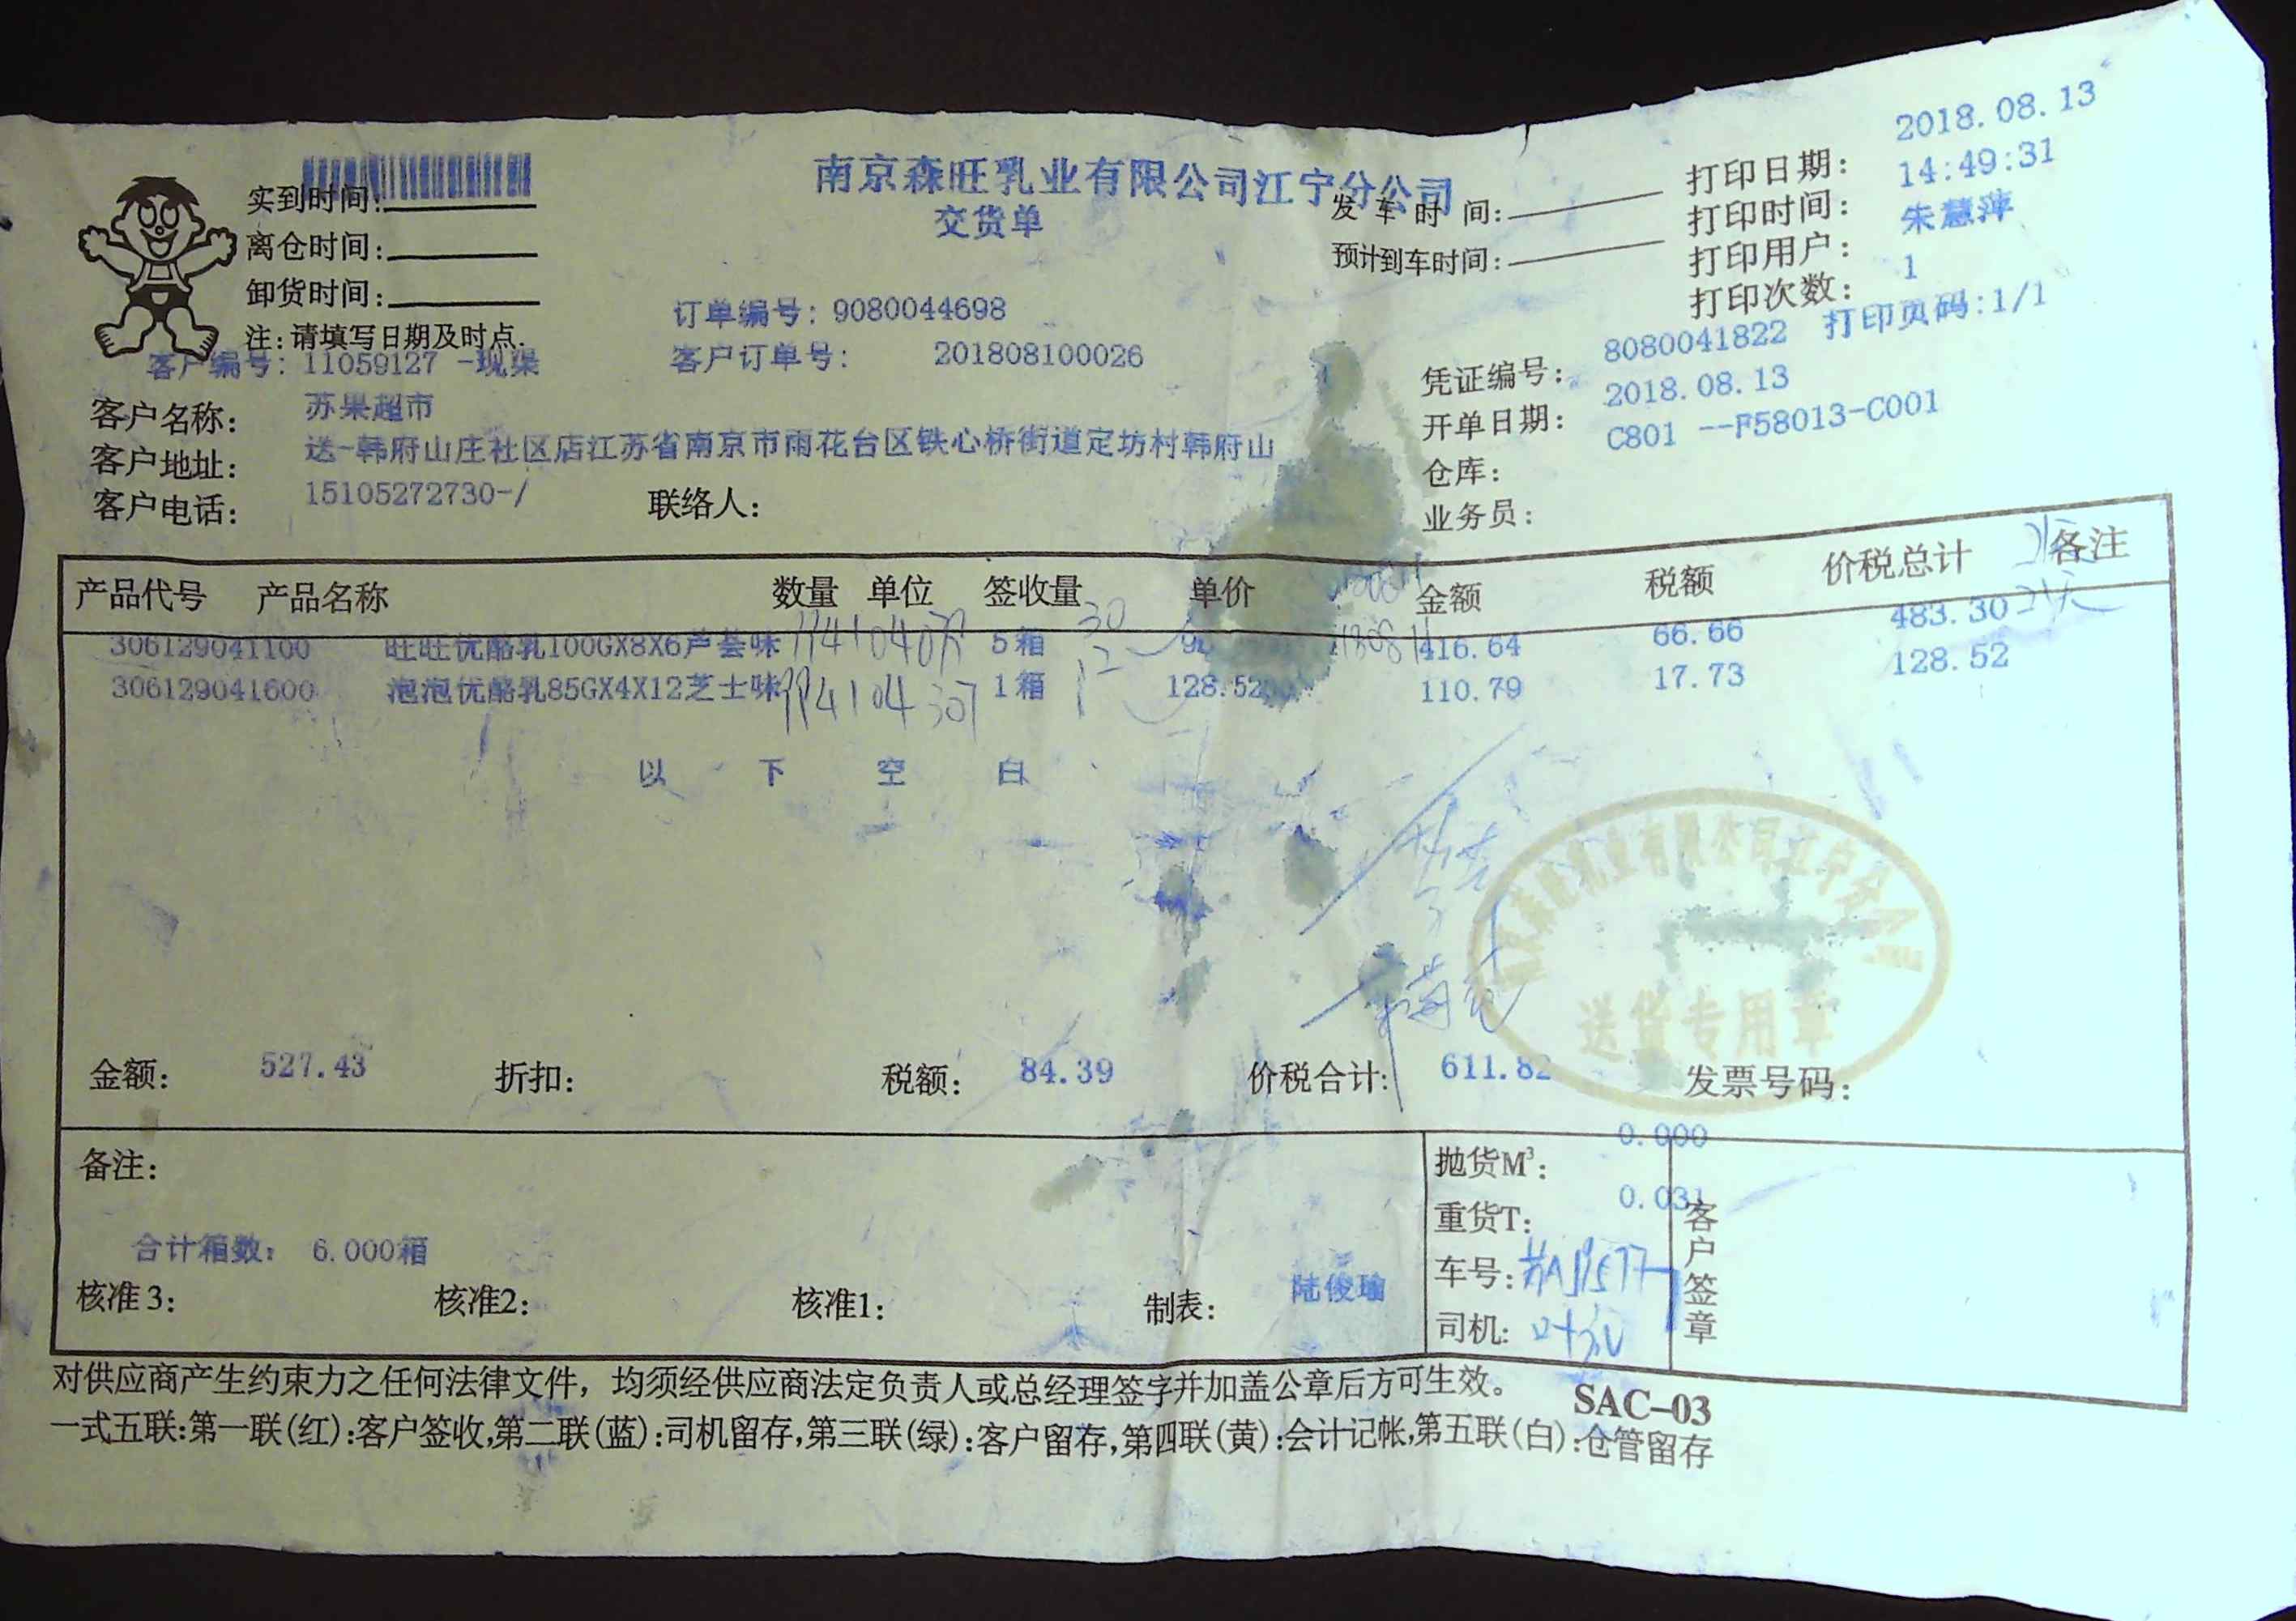 南京森旺乳业有限公司江宁分公司
交货单
实到时间:
离仓时间:
卸货时间:
注:请填写日期及时点.
发车时间:
预计到车时间:
打印日期: 2018.08.13
打印时间: 14:49:31
打印用户: 朱慧萍
打印次数: 1
订单编号: 9080044698
客户编号: 11059127 -现渠
客户订单号: 201808100026
凭证编号: 8080041822 打印页码:1/1
客户名称: 苏果超市
开单日期: 2018.08.13
客户地址: 送-韩府山庄社区店江苏省南京市雨花台区铁心桥街道定坊村韩府山
仓库: C801 --F58013-C001
客户电话: 15105272730-/ 联络人:
业务员:
产品代号 产品名称 数量 单位 签收量 单价 金额 税额 价税总计 备注
306129041100 旺旺优酪乳100GX8X6芦荟味 5箱 30 416.64 66.66 483.30
306129041600 泡泡优酪乳85GX4X12芝士味 1箱 12 128.52 110.79 17.73 128.52
以下空白
送货专用章
金额: 527.43 折扣: 税额: 84.39 价税合计: 611.82 发票号码:
备注:
抛货M³: 0.000
重货T: 0.031
合计箱数: 6.000箱
车号:
核准3: 核准2: 核准1: 制表: 陆俊瑜
司机:
客户签章
对供应商产生约束力之任何法律文件，均须经供应商法定负责人或总经理签字并加盖公章后方可生效。 SAC-03
一式五联:第一联(红):客户签收,第二联(蓝):司机留存,第三联(绿):客户留存,第四联(黄):会计记帐,第五联(白):仓管留存